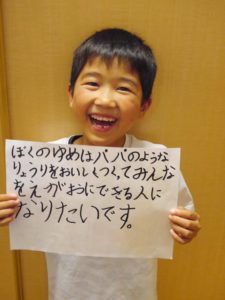 ぼくのゆめはパパのような
りょうりをおいしくつくってみんな
をえがおにできる人に
なりたいです。